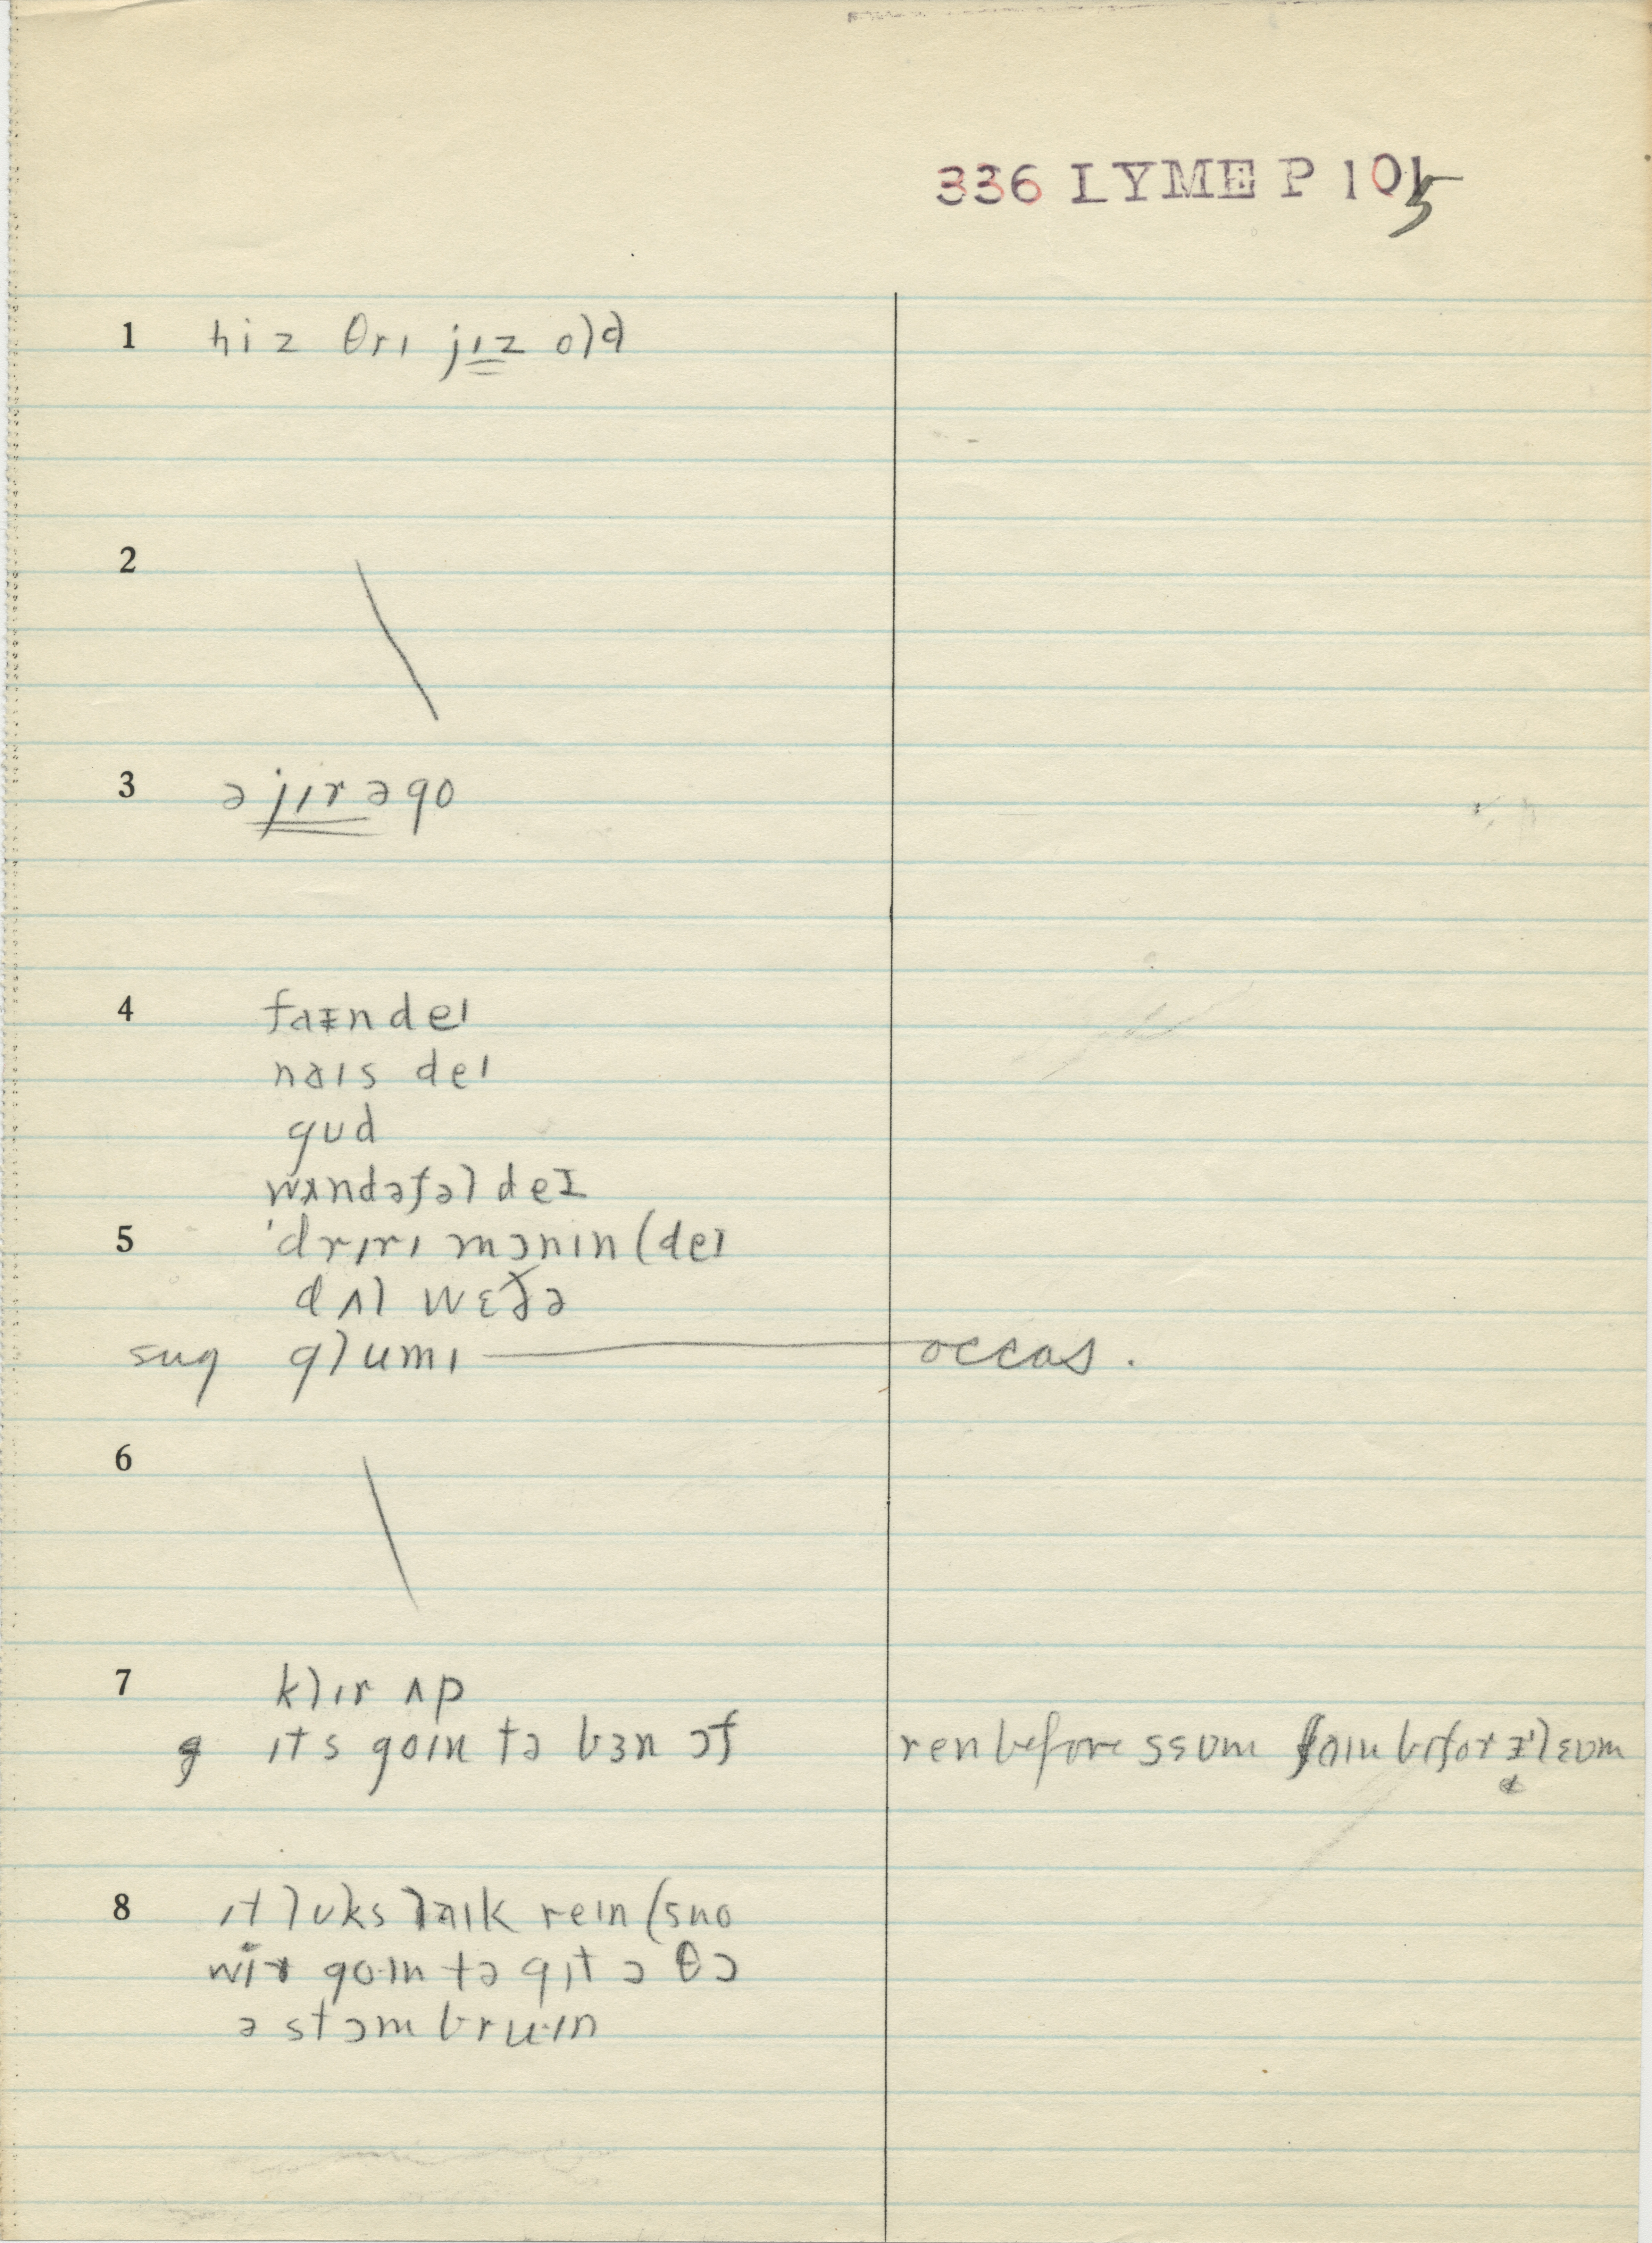 336 LYME P 105
1 hiz θrɪ jɪz old
2
3 ə jɪr əgo
4 faɪn deɪ
naɪs deɪ
gʊd
wʌndəfəl deɪ
5 'drɪrɪ mɔnɪn (deɪ
dʌl wɛðə
sug glumɪ — occas.
6
7 klɪr ʌp
g ɪts goɪn tə bɜn ɔf ren before ssʊm
8 ɪt lʊks laɪk reɪn (sno
wir go·ɪn tə gɪt ɔ θɔ
ə stɔm bru·ɪn